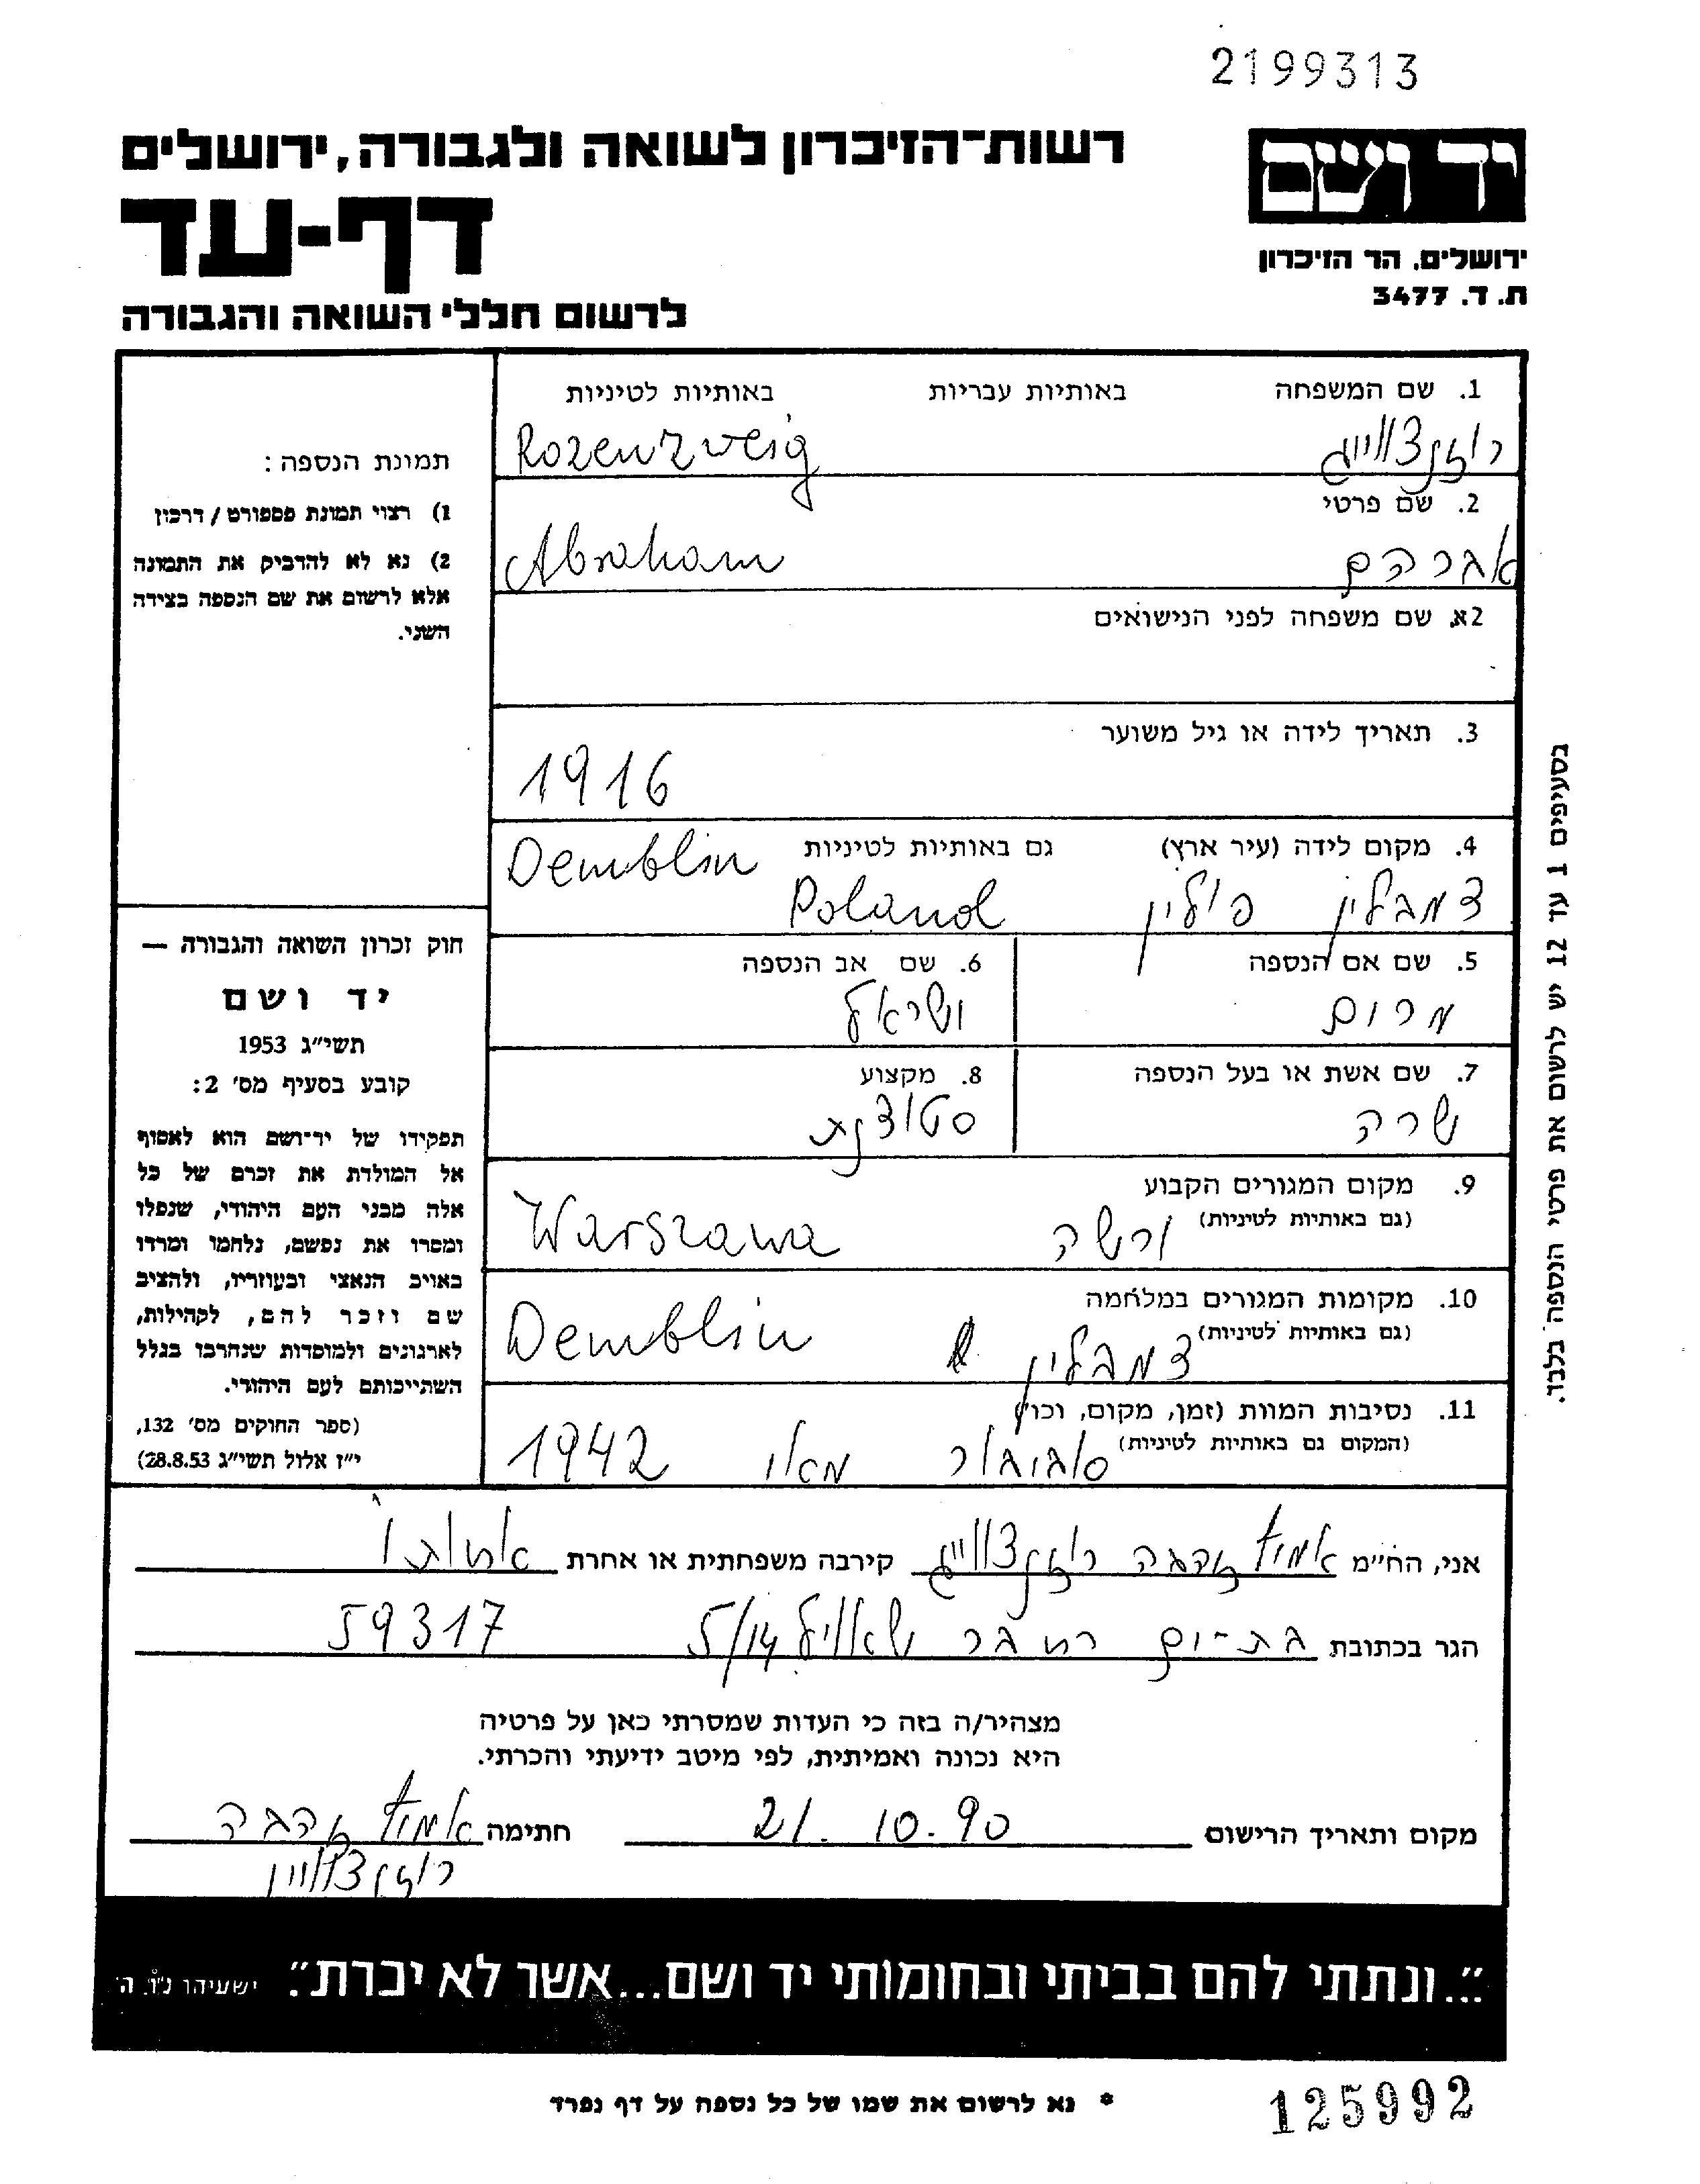 2199313
רשות־הזיכרון לשואה ולגבורה, ירושלים
יד ושם
דף-עד
ירושלים. הר הזיכרון
ת. ד. 3477
לרשום חללי השואה והגבורה
1. שם המשפחה באותיות עבריות באותיות לטיניות
רוזנצווייג Rozenzveig
2. שם פרטי
אברהם Abraham
2א. שם משפחה לפני הנישואים
3. תאריך לידה או גיל משוער
1916
4. מקום לידה (עיר ארץ) גם באותיות לטיניות Demblin
דמבלין פולין Poland
5. שם אם הנספה 6. שם אב הנספה
מרום ישראל
7. שם אשת או בעל הנספה 8. מקצוע
שרה סטודנת
9. מקום המגורים הקבוע
(גם באותיות לטיניות) ורשה Warszawa
10. מקומות המגורים במלחמה
(גם באותיות לטיניות) דמבלין Demblin
11. נסיבות המוות (זמן, מקום, וכו')
(המקום גם באותיות לטיניות) סוביבור מאי 1942
תמונת הנספה:
1) רצוי תמונת פספורט / דרכון
2) נא לא להדביק את התמונה
אלא לרשום את שם הנספה בצידה
השני.
חוק זכרון השואה והגבורה —
יד ושם
תשי״ג 1953
קובע בסעיף מס׳ 2:
תפקידו של יד־ושם הוא לאסוף
אל המולדת את זכרם של כל
אלה מבני העם היהודי, שנפלו
ומסרו את נפשם, נלחמו ומרדו
באויב הנאצי ובעוזריו, ולהציב
שם וזכר להם, לקהילות,
לארגונים ולמוסדות שנהרבו בגלל
השתייכותם לעם היהודי.
(ספר החוקים מס׳ 132,
י״ז אלול תשי״ג 28.8.53)
בסעיפים 1 עד 12 יש לרשום את פרטי הנספה בלבד.
אני, הח״מ זהבה רוזנצווייג קירבה משפחתית או אחרת אחותו
הגר בכתובת בת-ים 5/14 59317
מצהיר/ה בזה כי העדות שמסרתי כאן על פרטיה
היא נכונה ואמיתית, לפי מיטב ידיעתי והכרתי.
מקום ותאריך הרישום 21. 10. 90 חתימה זהבה
רוזנצוויין
״...ונתתי להם בביתי ובחומותי יד ושם...אשר לא יכרת״. ישעיהו נ״ו, ה׳
* נא לרשום את שמו של כל נספה על דף נפרד
125992